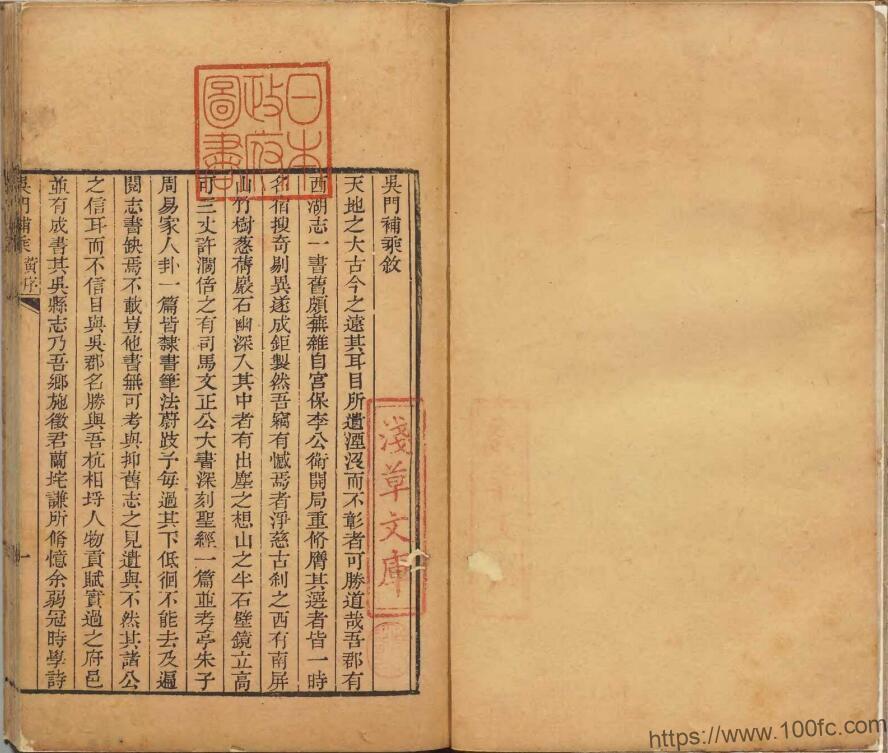 吳門補乘敘
天地之大古今之遠其耳目所遺湮沒而不彰者可勝道哉吾郡有
西湖志一書舊頗蕪雜自宮保李公衛開局重脩膺其選者皆一時
名宿搜奇剔異遂成鉅製然吾竊有憾焉者淨慈古刹之西有南屏
山竹樹蔥蒨巖石幽深入其中者有出塵之想山之半石壁鏡立高
可三丈許濶倍之有司馬文正公大書深刻聖經一篇並考亭朱子
周易家人卦一篇皆隸書筆法蔚跂予每過其下低徊不能去及遍
閱志書缺焉不載豈他書無可考與抑舊志之見遺與不然其諸公
之信耳而不信目與吳郡名勝與吾杭相埒人物貢賦實過之府邑
並有成書其吳縣志乃吾鄉施徵君蘭垞謙所脩憶余弱冠時學詩
吳門補乘 黃序
一
日本
政府
圖書
淺草文庫
https://www.100fc.com